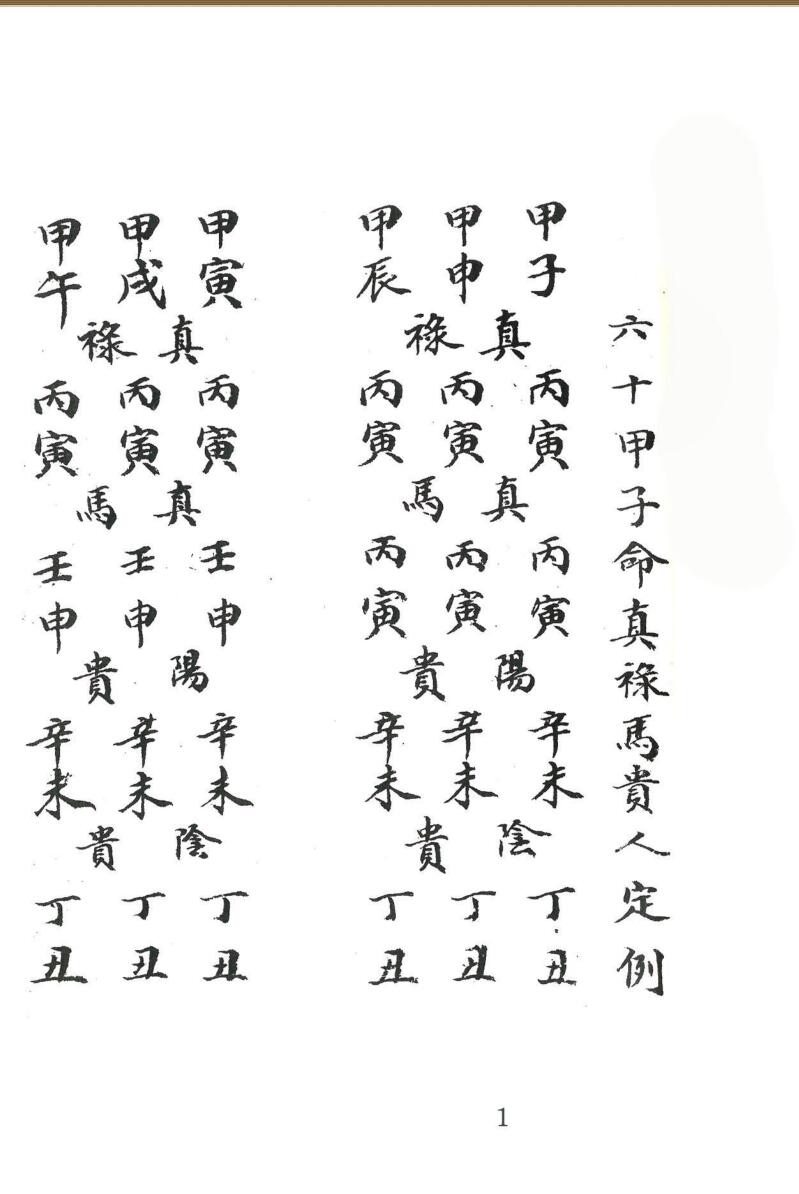 六十甲子命真祿馬貴人定例
甲子 甲申 甲辰
真祿
丙寅 丙寅 丙寅
真馬
丙寅 丙寅 丙寅
陽貴
辛未 辛未 辛未
陰貴
丁丑 丁丑 丁丑
甲寅 甲戌 甲午
真祿
丙寅 丙寅 丙寅
真馬
壬申 壬申 壬申
陽貴
辛未 辛未 辛未
陰貴
丁丑 丁丑 丁丑
1